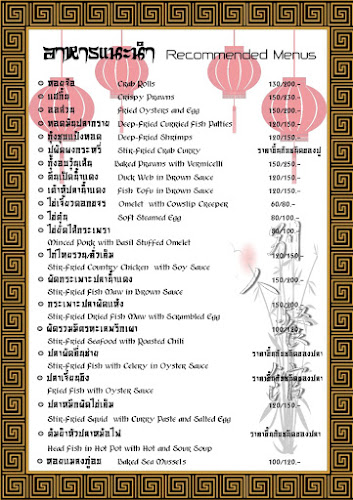 อาหารแนะนำ Recommended Menus
หอยจ๊อ Crab Rolls 150/200.-
แฮ่กึ๊น Crispy Prawns 150/250.-
ออส่วน Fried Oysters and Egg 150/200.-
ทอดมันปลากราย Deep-Fried Curried Fish Patties 120/150.-
กุ้งชุบแป้งทอด Deep-Fried Shrimps 120/150.-
ปูผัดผงกระหรี่ Stir-Fried Crab Curry ราคาขึ้นกับชนิดของปู
กุ้งอบวุ้นเส้น Baked Prawns with Vermicelli 150/250.-
ตีนเป็ดน้ำแดง Duck Web in Brown Sauce 120/150.-
เต้าหู้ปลาน้ำแดง Fish Tofu in Brown Sauce 120/150.-
ไข่เจียวดอกขจร Omelet with Cowslip Creeper 60/80.-
ไข่ตุ๋น Soft Steamed Egg 80/100.-
ไข่ยัดไส้กระเพรา 80/100.-
Minced Pork with Basil Stuffed Omelet
ไก่ไทยรวน/คั่วเค็ม 120/150.-
Stir-Fried Country Chicken with Soy Sauce
ผัดกระเพาะปลาน้ำแดง 120/150.-
Stir-Fried Fish Maw in Brown Sauce
กระเพาะปลาผัดแห้ง
Stir-Fried Dried Fish Maw with Scrambled Egg
ผัดรวมมิตรทะเลพริกเผา 100/120.-
Stir-Fried Seafood with Roasted Chili
ปลาผัดคึ่นช่าย ราคาขึ้นกับชนิดของปลา
Stir-Fried Fish with Celery in Oyster Sauce
ปลาเจี๋ยนขิง ราคาขึ้นกับชนิดของปลา
Fried Fish with Oyster Sauce
ปลาหมึกผัดไข่เค็ม 120/150.-
Stir-Fried Squid with Curry Paste and Salted Egg
ต้มยำหัวปลาหม้อไฟ ราคาขึ้นกับชนิดของปลา
Head Fish in Hot Pot with Hot and Sour Soup
หอยแมลงภู่อบ Baked Sea Mussels 100/120.-